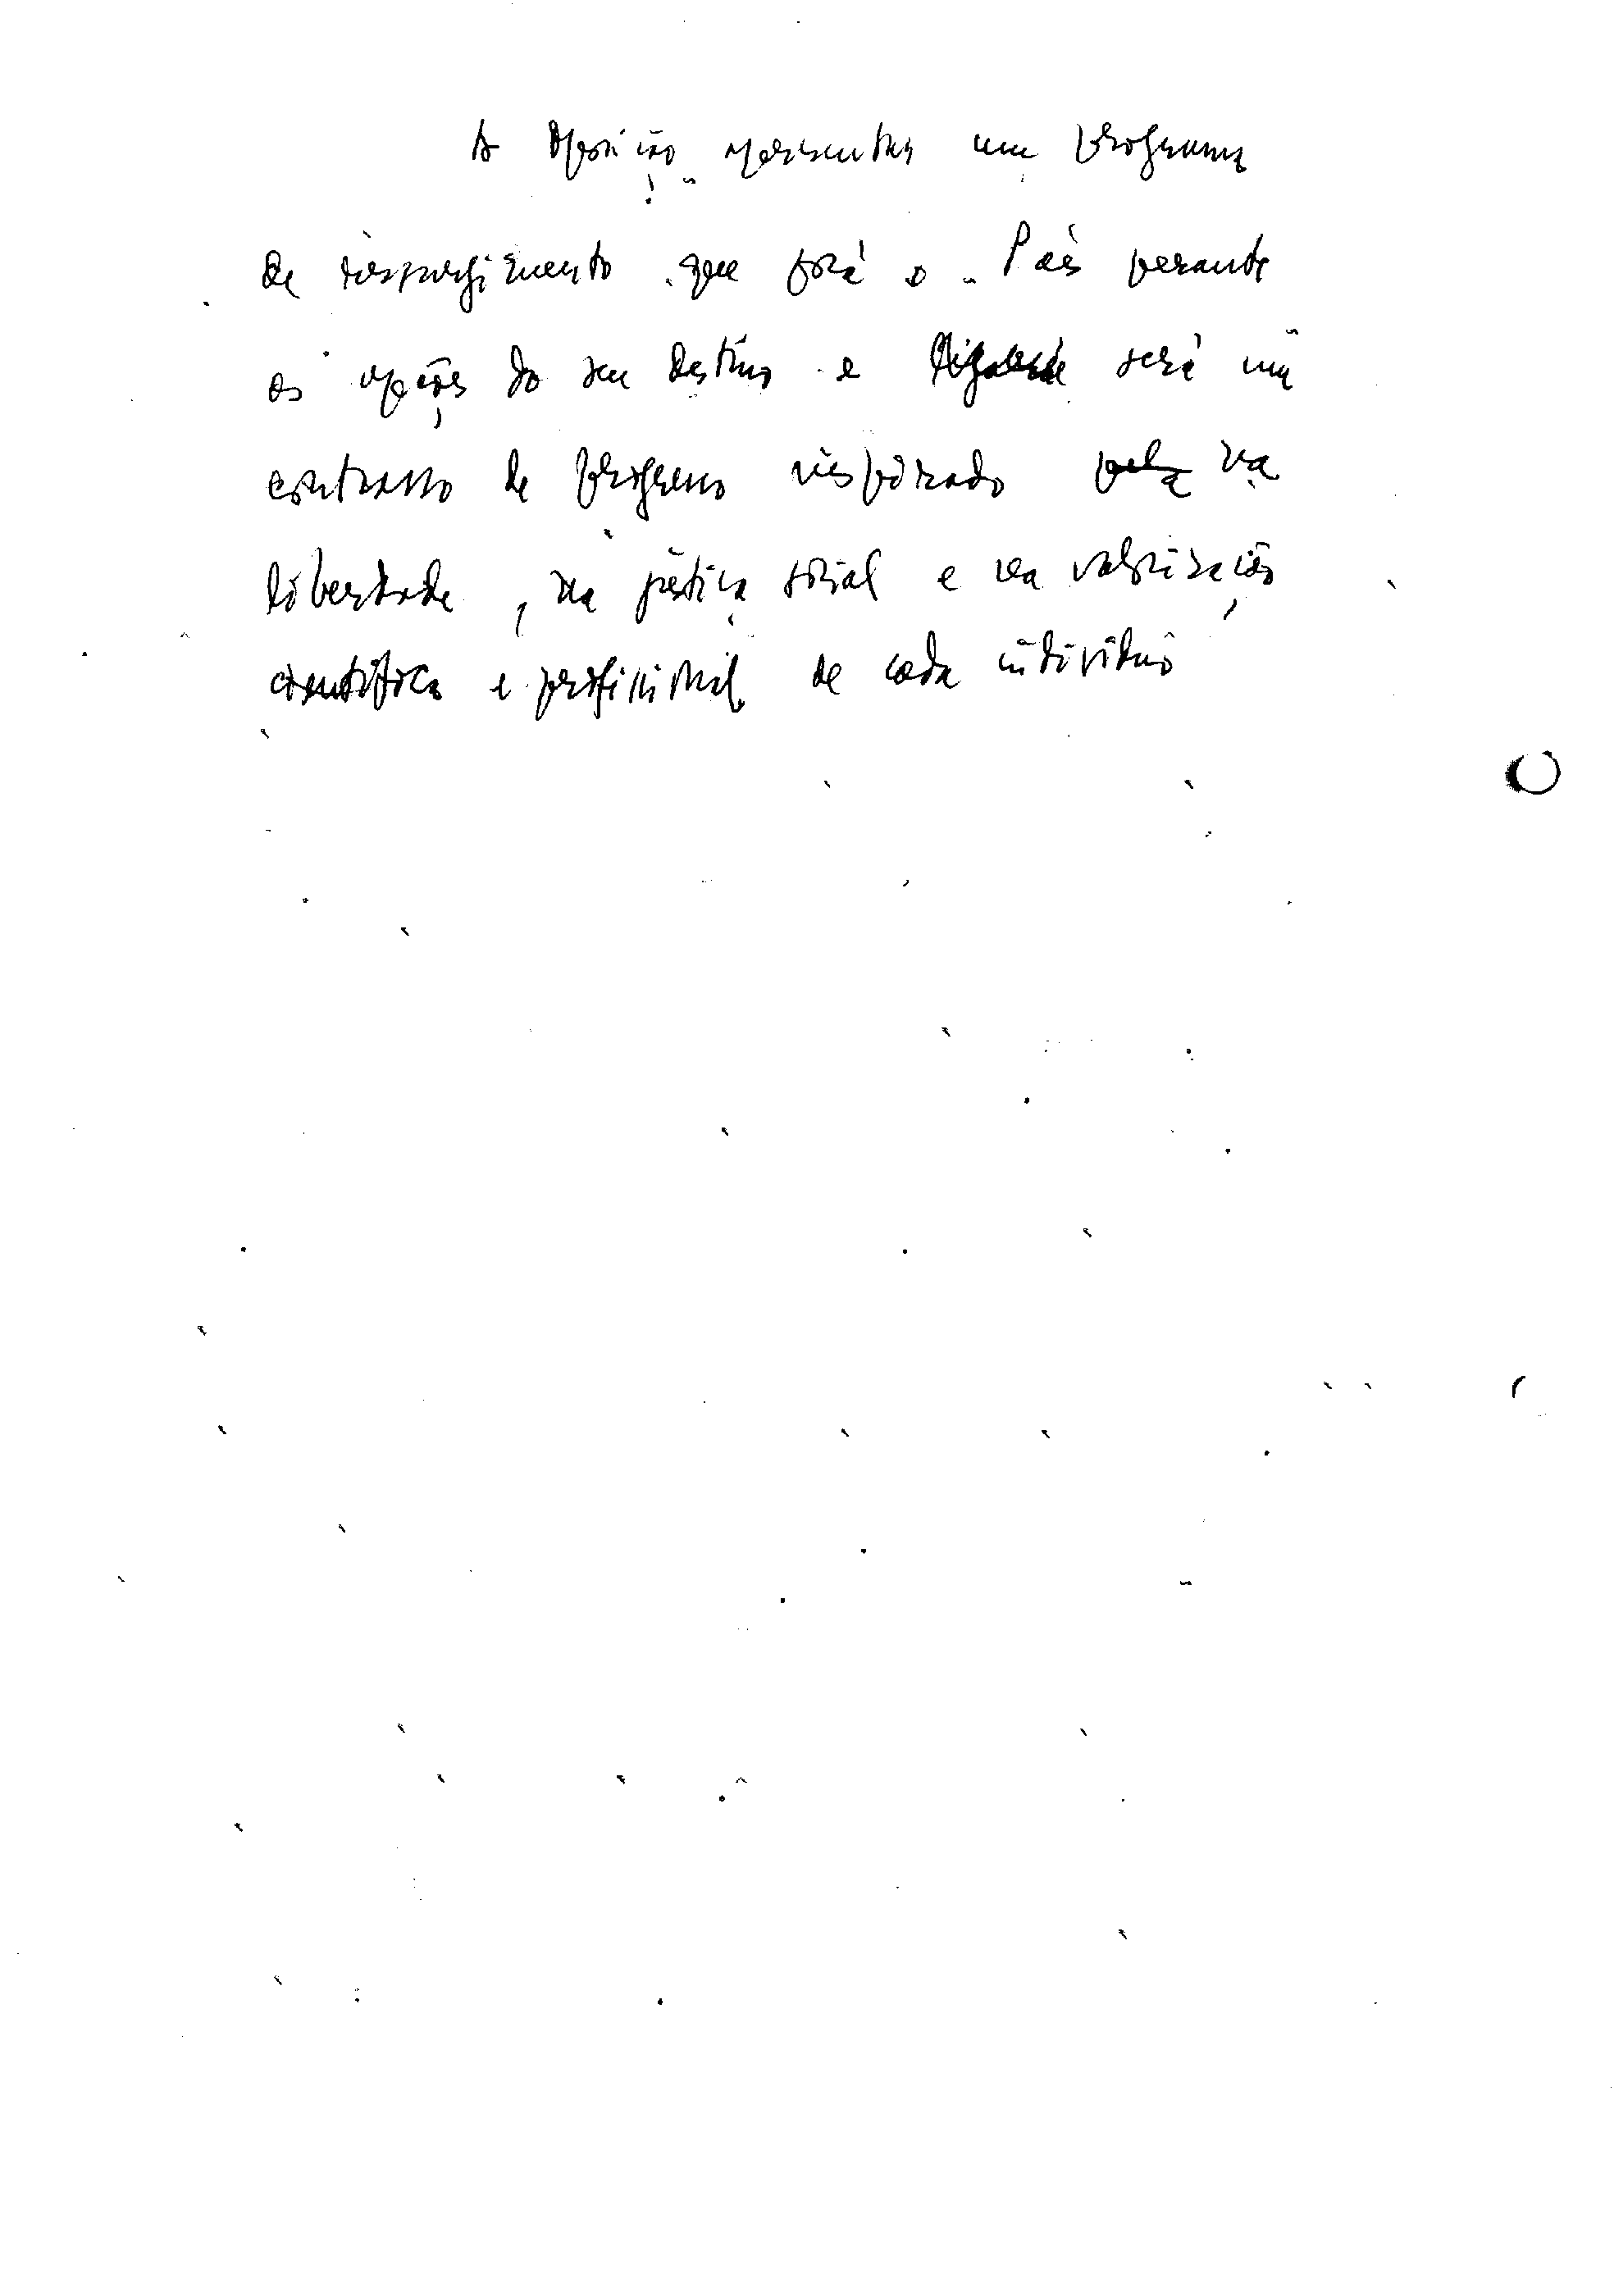 A Oposição apresentará um programa
de ressurgimento que porá o País perante
as opções do seu destino e será um
contrato de progresso inspirado pela na
liberdade, na justiça social e na valorização
científica e profissional de cada indivíduo